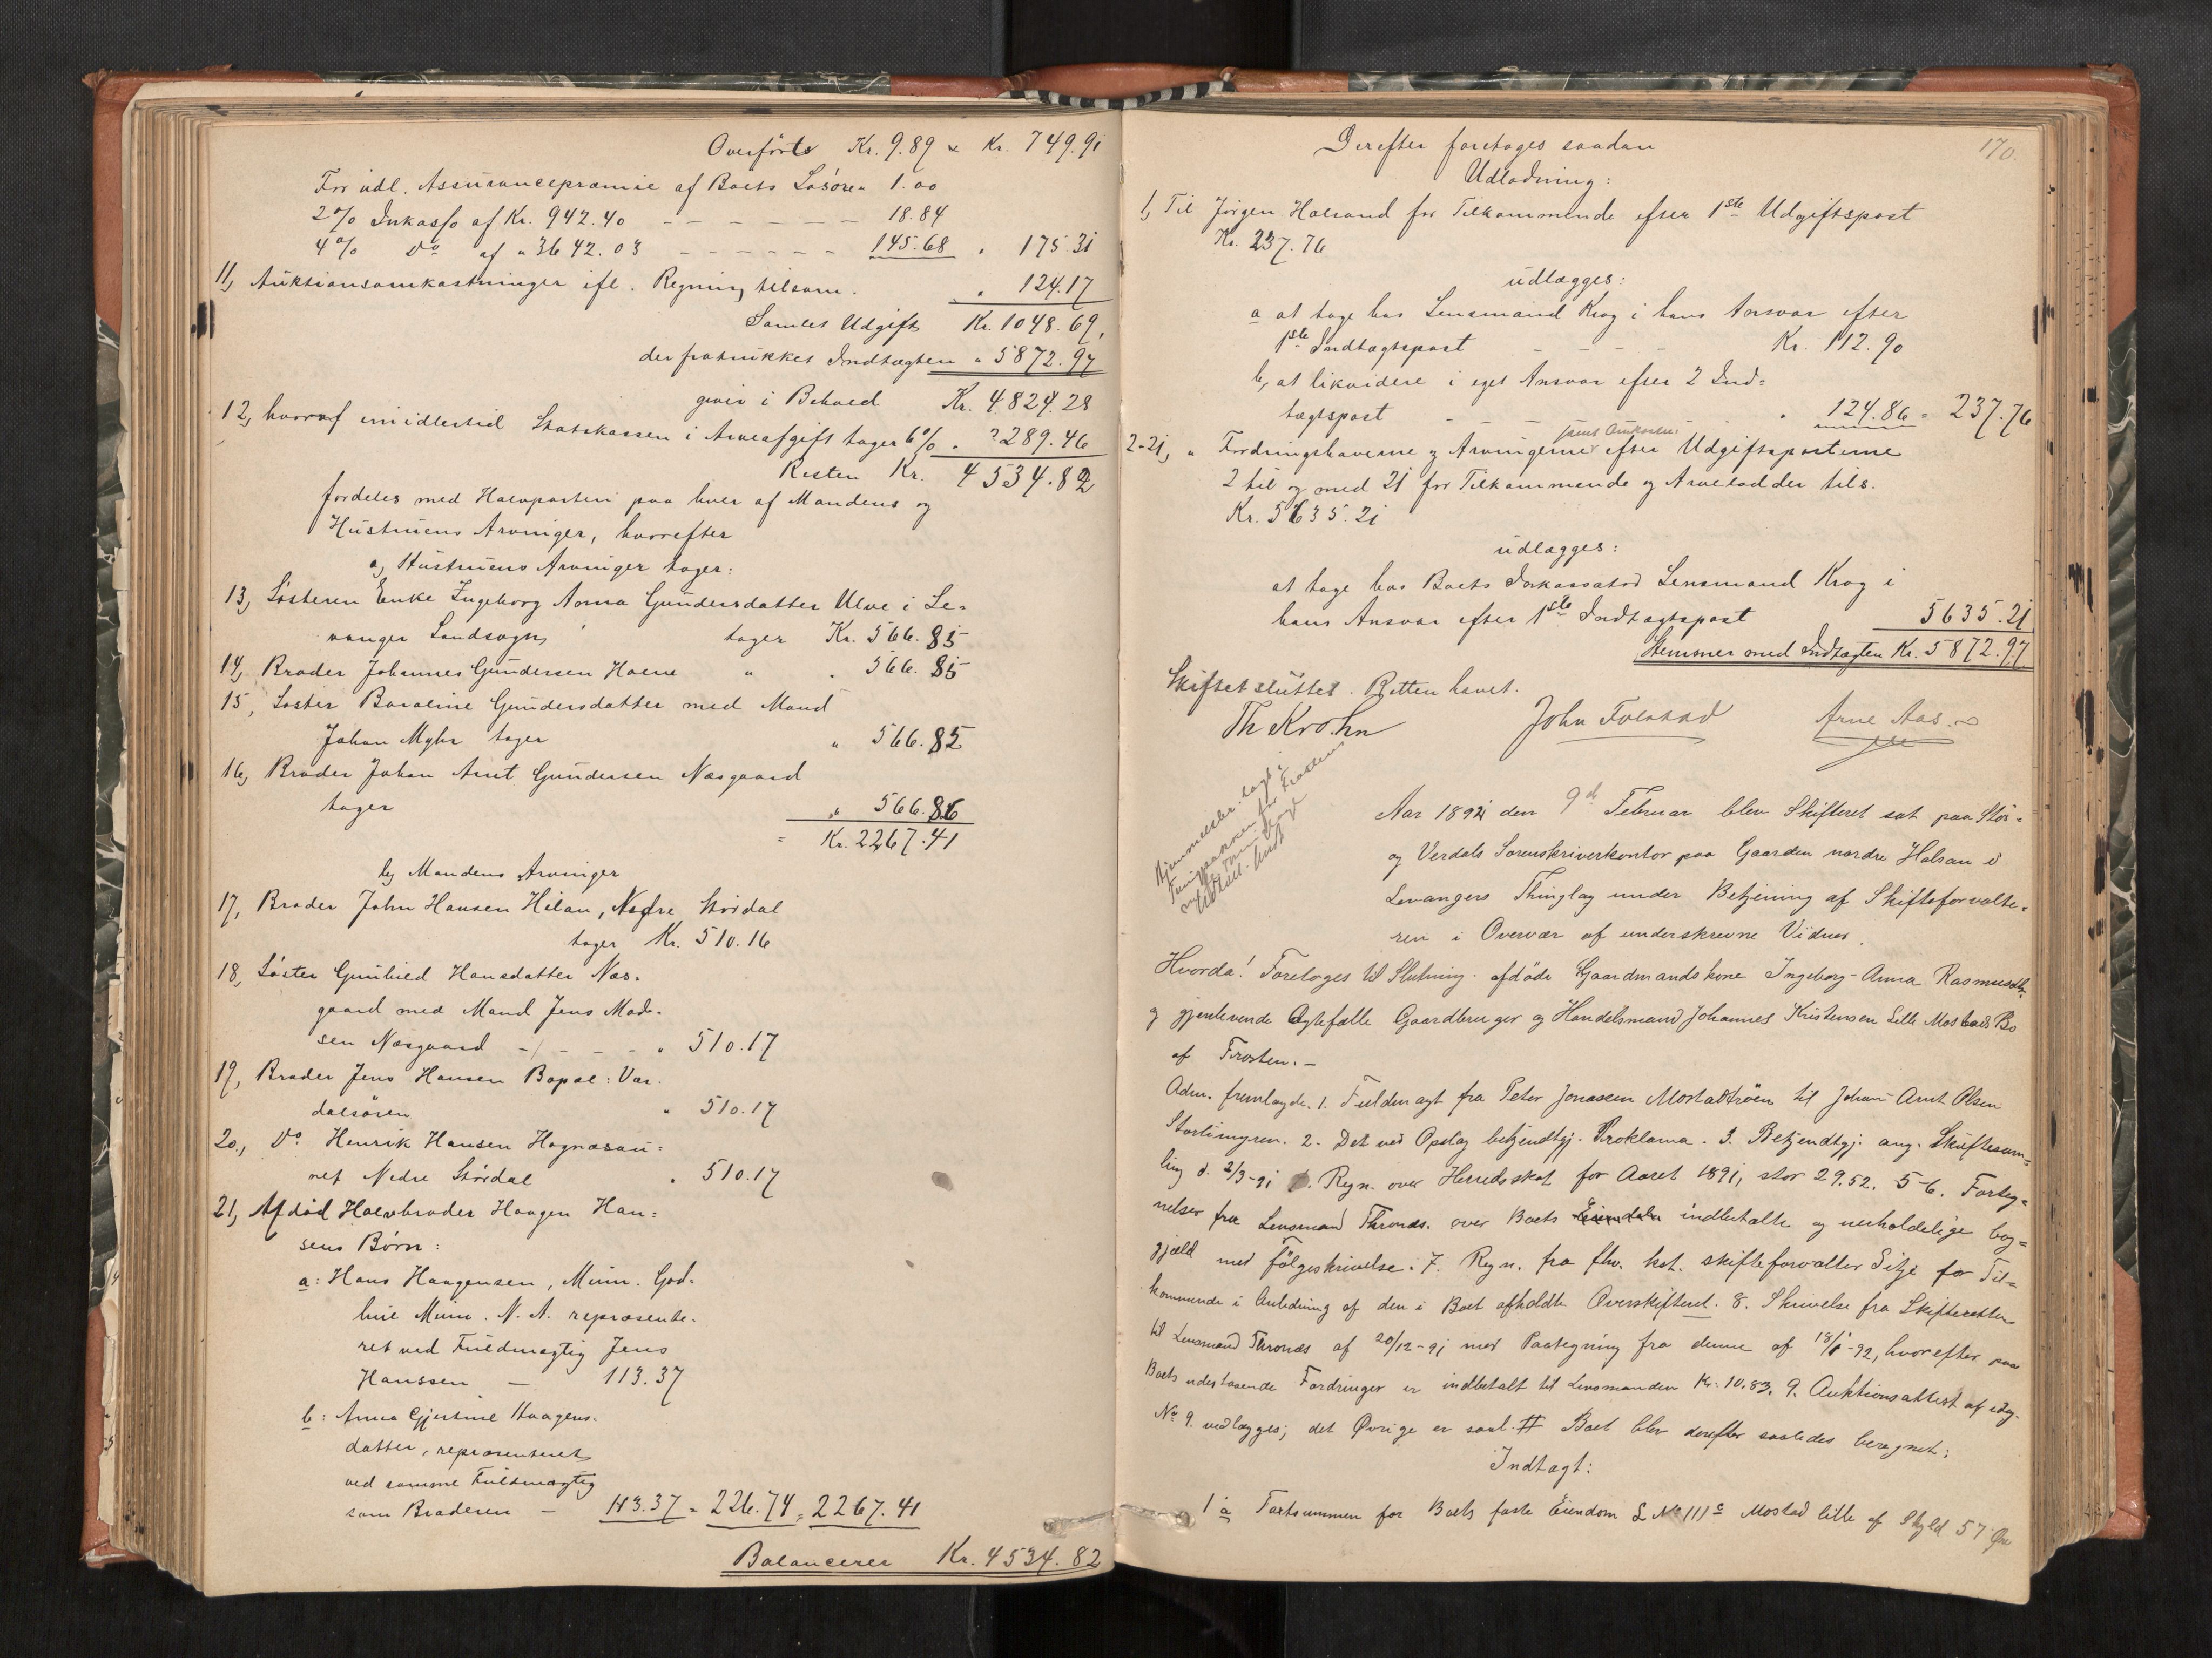 Overførte Kr. 9.89 Kr. 749.91
For udl. Assurancepræmie af Boets Løsøre " 1.00
2% Inkasso af Kr. 942.40 - - - - - - 18.84
4% Do af " 3642.03 - - - - - - 145.68 " 175.31
11, Auktionsomkostninger ifl. Regning tilsam. " 124.17
Samlet Udgift Kr. 1048.69,
der fratrukket Indtægten " 5872.97
giver i Behold Kr. 4824.28
12, hvoraf imidlertid Statskassen i Arveafgift tager 6% " 289.46
Resten Kr. 4534.82
fordeles med Halvparten paa hver af Mandens og
Hustruens Arvinger, hvorefter
a, Hustruens Arvinger tager:
13, Søsteren Enke Ingeborg Anna Gundersdatter Ulve i Le=
vanger Landsogn, tager Kr. 566.85
14, Broder Johannes Gundersen Hoene " " 566.85
15, Søster Baroline Gundersdatter med Mand
Johan Myhr tager " 566.85
16, Broder Johan Arnt Gundersen Næsgaard
tager " 566.86
= Kr. 2267.41
b, Mandens Arvinger
17, Broder John Hansen Hilan, Nedre Størdal
tager Kr. 510.16
18, Søster Gunhild Hansdatter Næs=
gaard med Mand Jens Mad=
sen Næsgaard - - - - " 510.17
19, Broder Jens Hansen Bopæl: Vær=
dalsøren " 510.17
20, Do Henrik Hansen Hognæsau=
net Nedre Størdal " 510.17
21, Afdød Halvbroder Haagen Han=
sens Børn:
a: Hans Haagensen, Minn. God=
hue Minn. N. A. repræsente=
ret ved Fuldmægtig Jens
Hanssen — 113.37
b: Anna Gjertine Haagens=
datter, repræsenteret
ved samme Fuldmægtig
som Broderen — 113.37 = 226.74 = 2267.41
Balancerer Kr. 4534.82
170.
Derefter foretoges saadan
Udlodning:
1, Til Jørgen Halsand for Tilkommende efter 1ste Udgiftspost
Kr. 237.76
udlægges:
a at tage hos Lensmand Krog i hans Ansvar efter
1ste Indtægtspost - - - - Kr. 112.90
b, at likvidere i eget Ansvar efter 2 Ind=
tægtspost - - - - " 124.86 = 237.76
samt Omkostn.
2-21, " Fordringshaverne og Arvingerne efter Udgiftsposterne
2 til og med 21 for Tilkommende og Arvelodder tils.
Kr. 5635.21
udlægges:
at tage hos Boets Inkassator Lensmand Krog i
hans Ansvar efter 1ste Indtægtspost 5635.21
Stemmer med Indtægten Kr. 5872.97
Skiftet sluttet. Retten hævet.
Th Krohn John Folstad Arne Aas
Aar 1892 den 9de Februar blev Skifteret sat paa Stør=
og Verdals Sorenskriverkontor paa Gaarden nordre Halsan i
Levangers Thinglag under Betjening af Skifteforvalte=
ren i Overvær af underskrevne Vidner.
Hvorda! Foretoges til Slutning afdøde Gaardmandskone Ingeborg-Anna Rasmusdtr.
og gjenlevende Ægtefælle Gaardbruger og Handelsmand Johannes Kristensen Lille Mostads Bo
af Frosten.-
Adm. fremlagde. 1. Fuldmagt fra Peter Jonassen Mostadtrøen til Johan Arnt Olsen
Stortimyren. 2. Det ved Opslag bekjendtgj. Proklama. 3. Bekjendtgj. ang. Skiftesam=
ling d. 2/3-91 Regn. over Herredsskat for Aaret 1891, stor 29.52. 5-6. Forteg=
nelser fra Lensmand Thronæs. over Boets Eiendele indbetalte og uerholdelige bog=
gjæld med Følgeskrivelse. 7. Regn. fra fhv. kst. skifteforvalter Sitje for Til=
kommende i Anledning af den i Boet afholdte Overskifteret. 8. Skrivelse fra Skifteretten
til Lensmand Thronæs af 20/12-91 med Paategning fra denne af 18/1-92, hvorefter paa
Boets udestaaende Fordringer er indbetalt til Lensmanden Kr. 10.83. 9. Auktionsattest af idag.
No 9. vedlægges; det Øvrige er saal. # Boet blev derefter saaledes beregnet:
Indtægt:
1 a Taxtsummen for Boets faste Eiendom L No 111c Mostad lille af Skyld 57 Øre